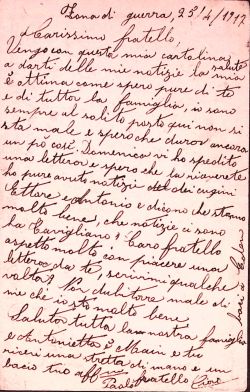 Zona di guerra, 25/4/1917
Carissimo fratello,
Vengo con questa mia cartolina
a darti delle mie notizie la mia salute
è ottima come spero pure di te
e di tutta la famiglia, io sono
sempre al solito posto qui non si
sta male e spero che duri ancora
un pò così. Domenica vi ho spedito
una lettera e spero che la riceverete
ho pure avuto notizie dei cugini
Ettore e Antonio e dicono che stanno
molto bene, che notizie ci sono
ha Cavigliano? Caro fratello
aspetto molto con piacere una
lettera da te, scrivimi qualche
volta? Non dubitare male di
me che io sto molto bene
Saluta tutta la nostra famiglia
e Antonietta e Main e tu
ricevi una stretta di mano e un
bacio tuo aff fratello
Paoli